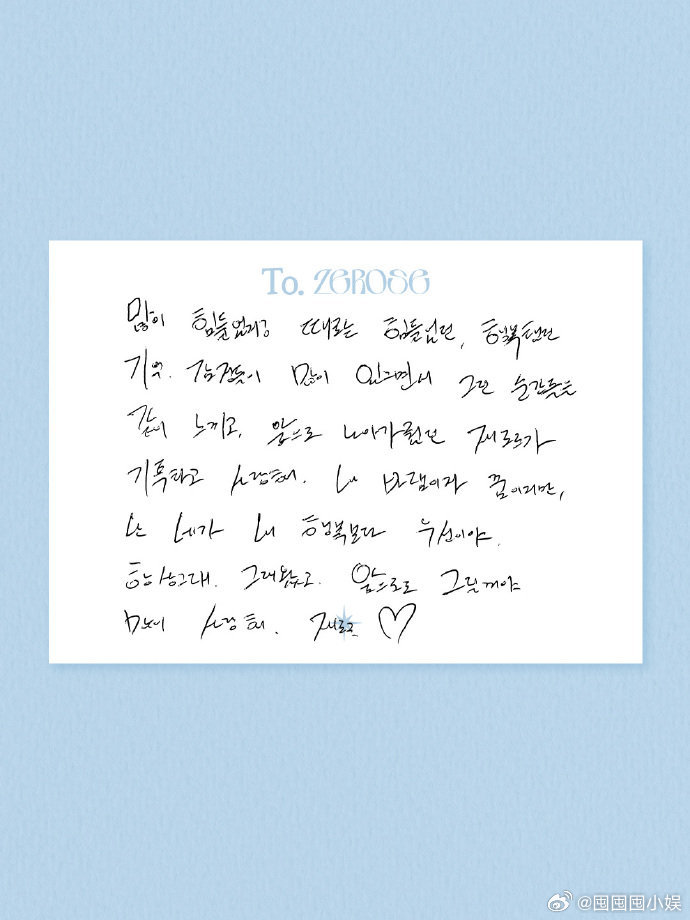 To. ZEROSE
많이 힘들었괴궁 때로는 힘들었던, 행복했던
기억. 감정들이 많이 있으면서 그런 순간들을
같이 느끼고, 앞으로 나아가줬던 제로즈가
기특하고 사랑해. 내 바램이자 꿈이지만,
난 네가 내 행복보다 우선이야.
항상그래. 그래왔고. 앞으로도 그럴꺼야
많이 사랑해. 제로즈 ♡
@囤囤囤小娱